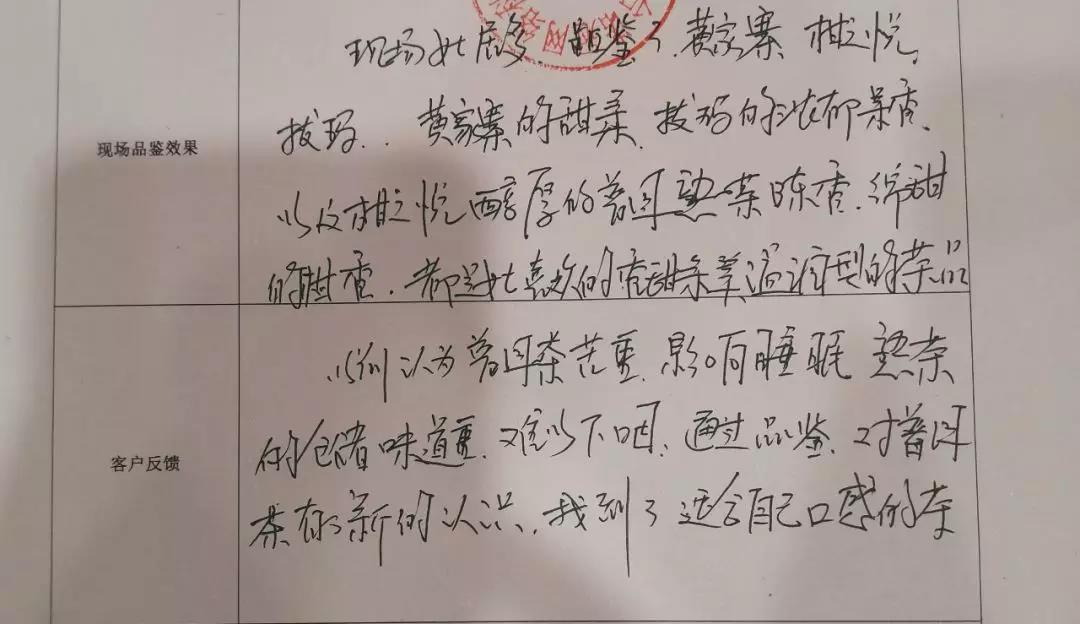 现场女士居多，品鉴了黄家寨 柑之悦，
现场品鉴效果
拔玛．．黄家寨的甜柔 拔玛的浓郁茶香，
以及柑之悦醇厚的普洱熟茶陈香，绵甜
的柑香，都是女士喜欢的香甜柔美温润型的茶品
以前认为普洱茶苦重，影响睡眠 熟茶
的仓储味道重，难以下咽，通过品鉴，对普洱
客户反馈
茶有了新的认识，找到了适合自己口感的茶